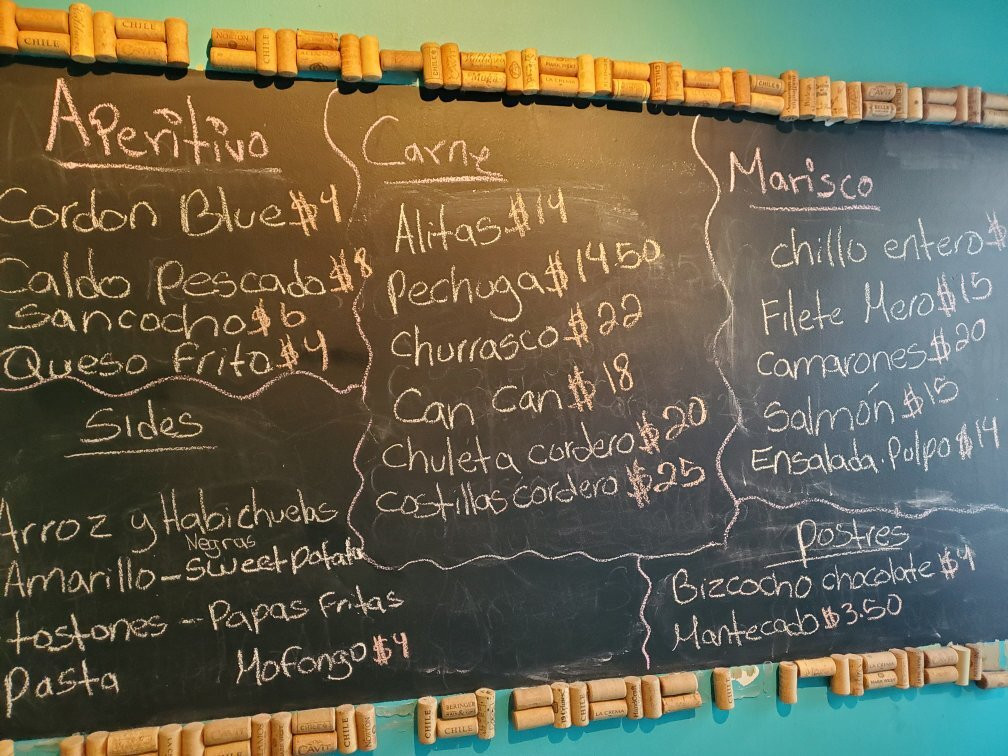 Aperitivo
Cordon Blue $4
Caldo Pescado $8
Sancocho $6
Queso Frito $4
Sides
Arroz y Habichuelas
Negras
Amarillo - Sweet potato
tostones - Papas Fritas
Pasta Mofongo $4
Carne
Alitas $14
Pechuga $14.50
Churrasco $22
Can Can $18
Chuleta cordero $20
Costillas cordero $25
Marisco
chillo entero $
Filete Mero $15
Camarones $20
Salmón $15
Ensalada.Pulpo $14
Postres
Bizcocho chocolate $4
Mantecado $3.50
CHILE
CHILE
CHILE
CHILE
CHILE
BERINGER
LA CREMA
CHILE
CAVIT
LA CREMA